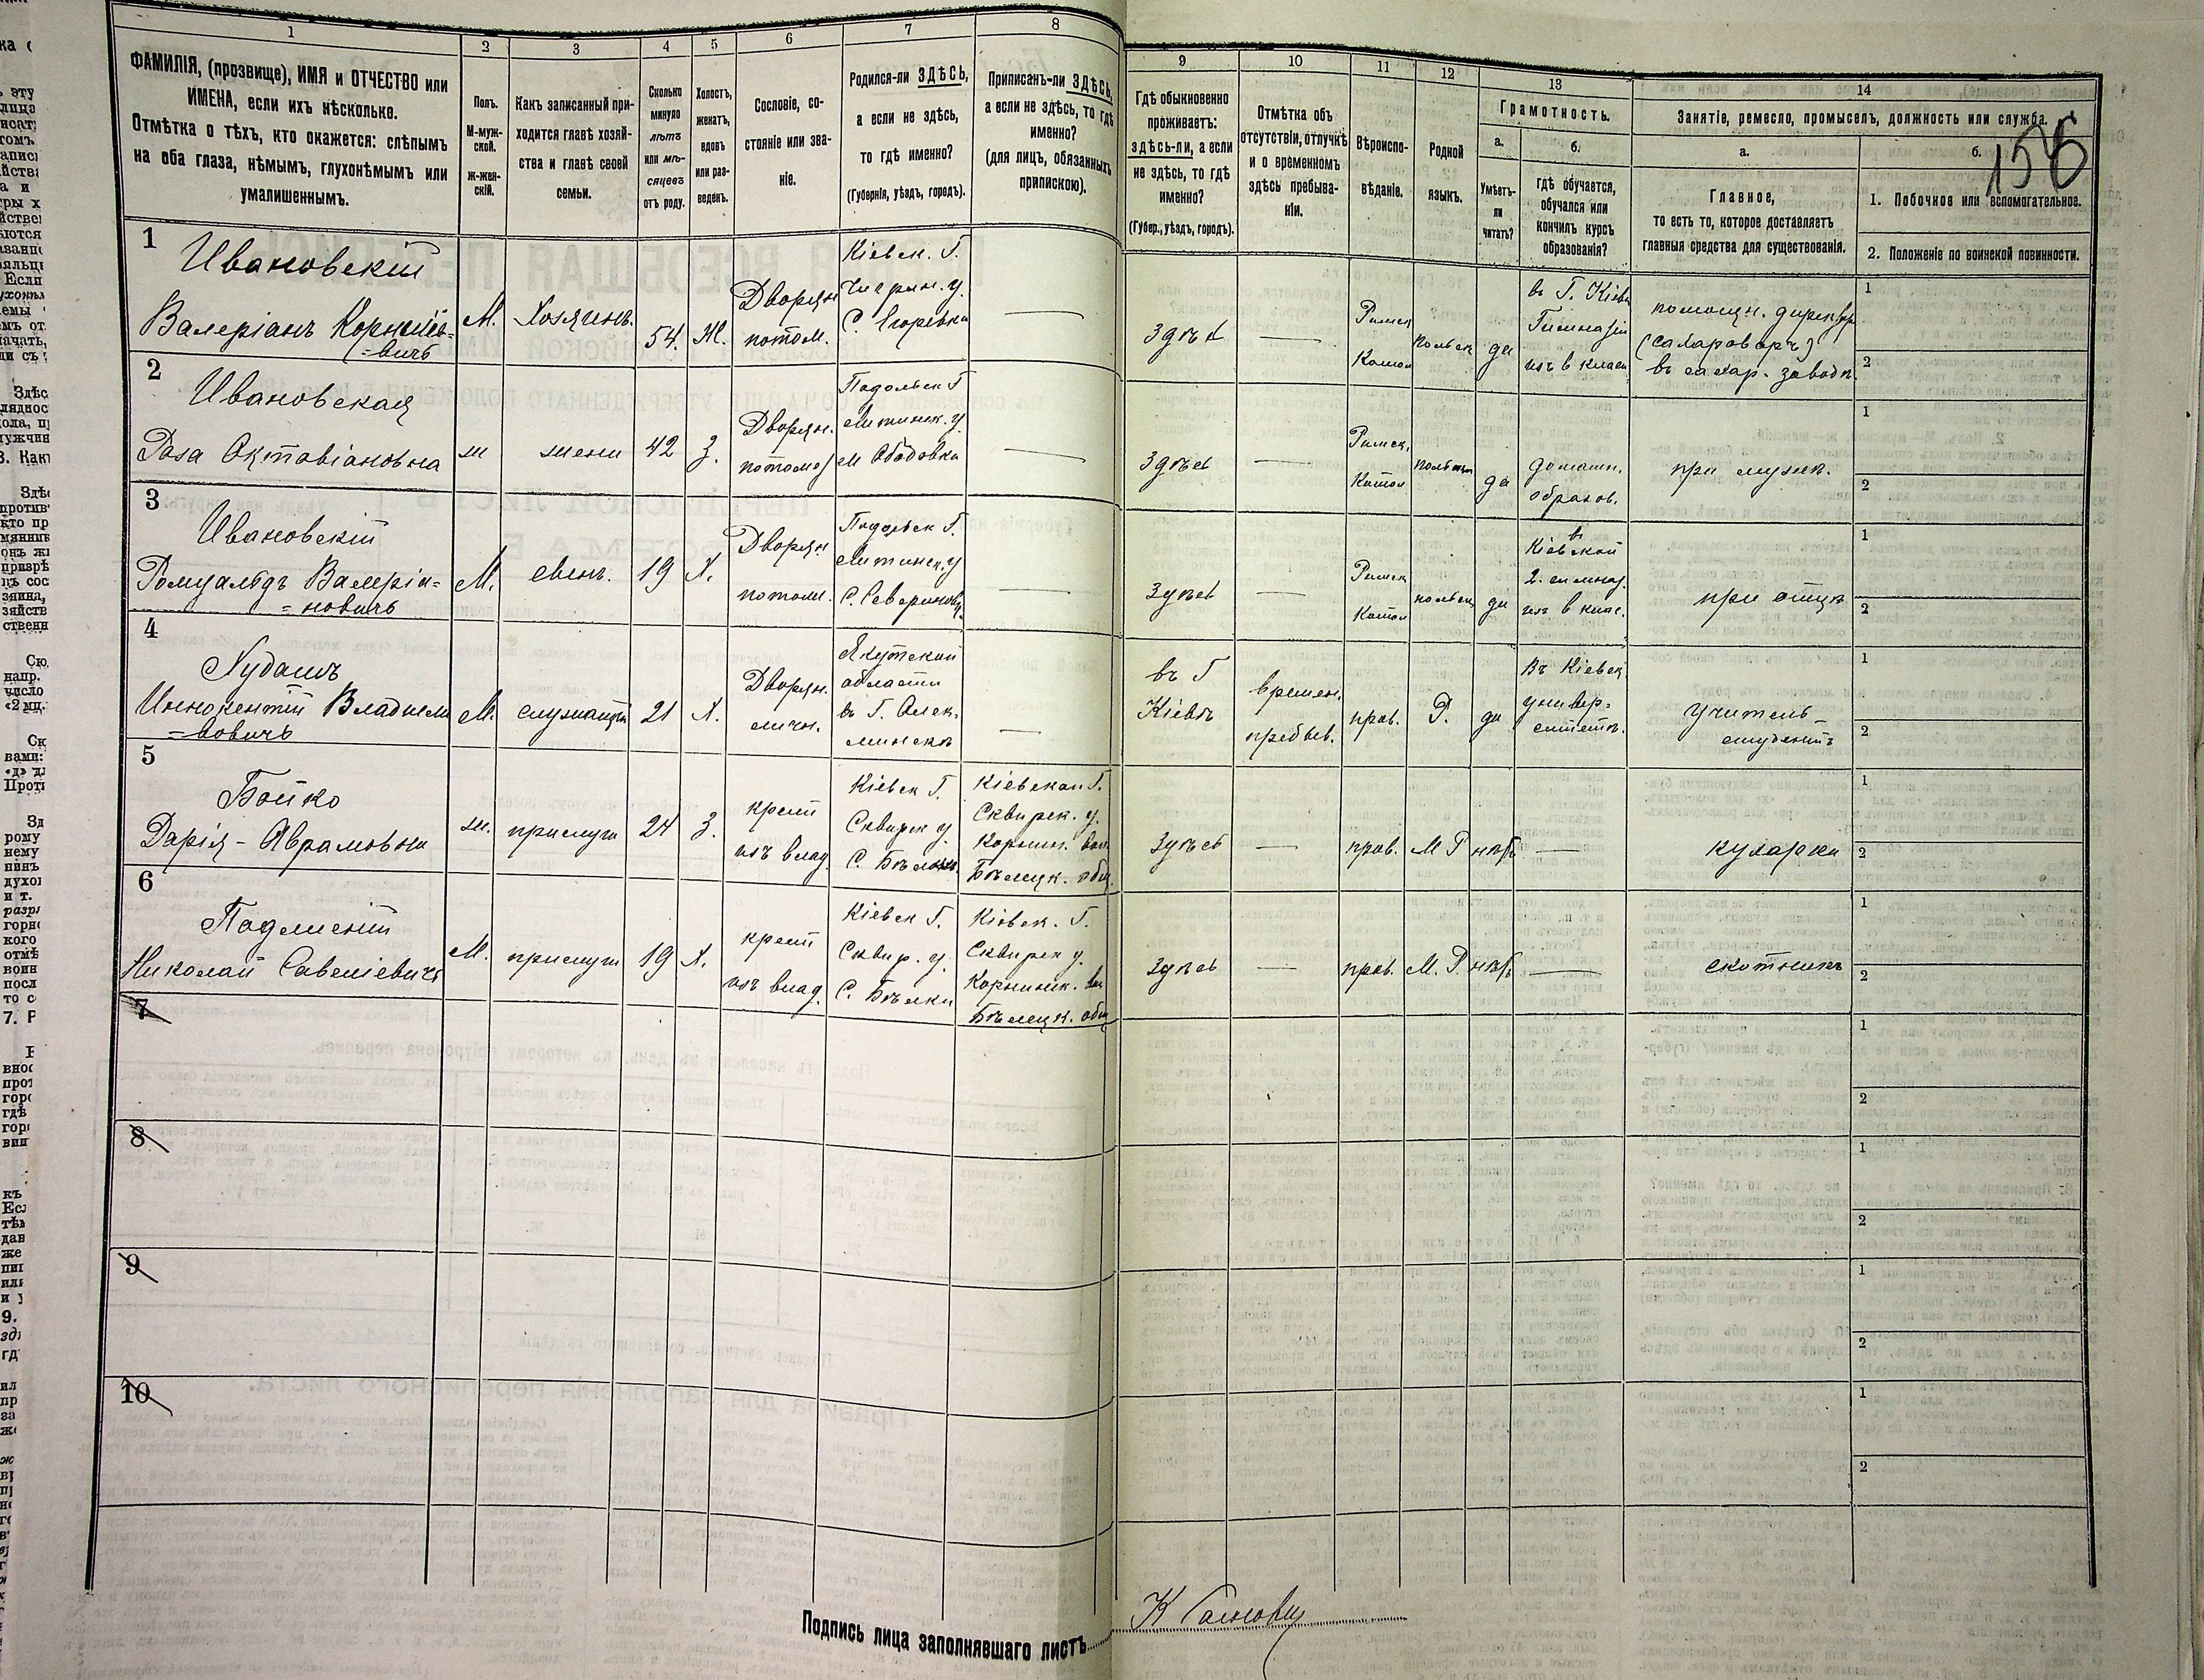 1
2
3
4
5
6
7
8
9
10
11
12
13
14
ФАМИЛІЯ, (прозвище), ИМЯ и ОТЧЕСТВО или
ИМЕНА, если ихъ нѣсколько.
Отмѣтка о тѣхъ, кто окажется: слѣпымъ
на оба глаза, нѣмымъ, глухонѣмымъ или
умалишеннымъ.
Полъ.
М-муж-
ской.
ж-жен-
скій.
Какъ записанный при-
ходится главѣ хозяй-
ства и главѣ своей
семьи.
Сколько
минуло
лѣтъ
или мѣ-
сяцевъ
отъ роду.
Холостъ,
женатъ,
вдовъ
или раз-
веденъ.
Сословіе, со-
стояніе или зва-
ніе.
Родился-ли ЗДѢСЬ,
а если не здѣсь,
то гдѣ именно?
(Губернія, уѣздъ, городъ).
Приписанъ-ли ЗДѢСЬ,
а если не здѣсь, то гдѣ
именно?
(для лицъ, обязанныхъ
припискою).
Гдѣ обыкновенно
проживаетъ:
здѣсь-ли, а если
не здѣсь, то гдѣ
именно?
(Губер., уѣздъ, городъ).
Отмѣтка объ
отсутствіи, отлучкѣ
и о временномъ
здѣсь пребыва-
ніи.
Вѣроиспо-
вѣданіе.
Родной
языкъ.
Грамотность.
а.
Умѣетъ-
ли
читать?
б.
гдѣ обучается,
обучался или
кончилъ курсъ
образованія?
Занятіе, ремесло, промыселъ, должность или служба.
а.
Главное,
то есть то, которое доставляетъ
главныя средства для существованія.
б.
1. Побочное или вспомогательное.
2. Положеніе по воинской повинности.
1
Ивановскій
Валеріанъ Корніліе-
=вичъ
М.
Хозяинъ.
54.
Ж.
Дворян
потом.
Кіевск. Г.
Чигрин. у.
С. Егоревка
здѣсь
Римск
Катол
польск
да
въ Г. Кіевѣ
Гимназіи
изъ в класс
помощн. директора
(сахароваръ)
въ сахар. заводѣ.
1
2
2
Ивановская
Роза Октавіановна
ж
жена
42
З.
Дворян.
потом
Подольск Г
Литинск. у
м Ободовка
здѣсь
Римск.
Катол
польск
да
домашн.
образов.
при мужѣ.
1
2
3
Ивановскій
Ромуальдъ Валеріа-
=новичъ
М.
сынъ.
19
Х.
Дворян
потом.
Подольск Г.
Литинск. у
С. Севериновка
здѣсь
Римск
Катол
польск
да
въ
Кіевской
2. гимназ.
изъ в клас.
при отцѣ
1
2
4
Иннокентій Владими
=ровичъ
М.
служащій
21
Х.
Дворян.
личн.
Якутской
области
въ Г. Олек-
минскѣ
въ Г
Кіевѣ
времен.
пребыв.
прав.
Р.
да
Въ Кіевск.
универ=
ситетѣ.
учитель-
студентъ
1
2
5
Бойко
Дарія - Аврамовна
ж.
прислуга
24
З.
крест
изъ влад.
Кіевск Г.
Сквирск у.
С. Бѣлки.
Кіевской Г.
Сквирск. у.
Корнин. вол.
Бѣлецк. общ.
здѣсь
прав.
М Р
нѣтъ
кухарка
1
2
6
Николай Савеліевичъ
М.
прислуга
19
Х.
крест
изъ влад.
Кіевск Г.
Сквир. у.
С. Бѣлки
Кіевск. Г.
Сквирск у.
Корнинск. вол
Бѣлецк. общ
здѣсь
прав.
М. Р.
нѣтъ
скотникъ
1
2
7
1
2
8
1
2
9
1
2
10
1
2
Подпись лица заполнявшаго листъ